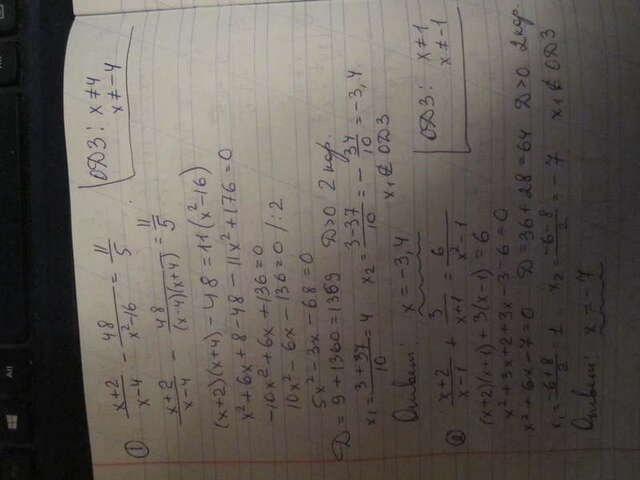 Alt
ОДЗ: x≠4
x≠-4
① (x+2)/(x-4) - 48/(x²-16) = 11/5
(x+2)/(x-4) - 48/((x-4)(x+4)) = 11/5
(x+2)(x+4) - 48 = 11(x²-16)
x²+6x+8-48-11x²+176=0
-10x²+6x+136=0
10x²-6x-136=0 /:2
5x²-3x-68=0
D = 9+1360=1369 D>0 2 кор.
x₁=(3+37)/10=4 x₂=(3-37)/10=-34/10=-3,4
x₁∉ОДЗ
Ответ: x=-3,4
ОДЗ: x≠1
x≠-1
② (x+2)/(x-1) + 3/(x+1) = 6/(x²-1)
(x+2)(x+1)+3(x-1)=6
x²+3x+2+3x-3-6=0
x²+6x-7=0 D=36+28=64 D>0 2 кор.
x₁=(-6+8)/2=1 x₂=(-6-8)/2=-7 x₁∉ОДЗ
Ответ: x=-7